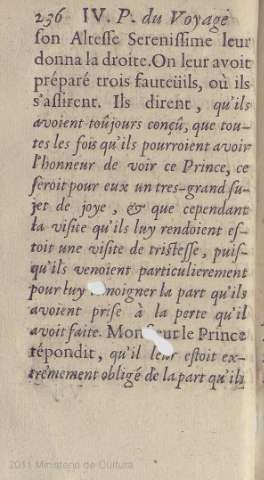 236 IV. P. du Voyage
son Altesse Serenissime leur
donna la droite. On leur avoit
préparé trois fauteüils, où ils
s'assirent. Ils dirent, qu'ils
avoient toûjours conçû, que tou-
tes les fois qu'ils pourroient avoir
l'honneur de voir ce Prince, ce
seroit pour eux un tres-grand su-
jet de joye, & que cependant
la visite qu'ils luy rendoient es-
toit une visite de tristesse, puis-
qu'ils venoient particulierement
pour luy moigner la part qu'ils
avoient prise à la perte qu'il
avoit faite. le Prince
répondit, qu'il leur estoit ex-
trémement obligé de la part qu'ils
2011 Ministerio de Cultura